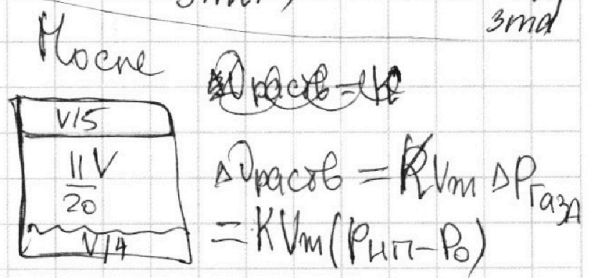 3md
После
V/5
11V
20
V/4
ΔϑрасTв = KVm ΔPгаза
= KVm(Pнп-P0)